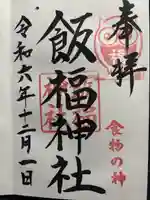 奉拝
食物の神
飯福神社
令和六年十二月一日